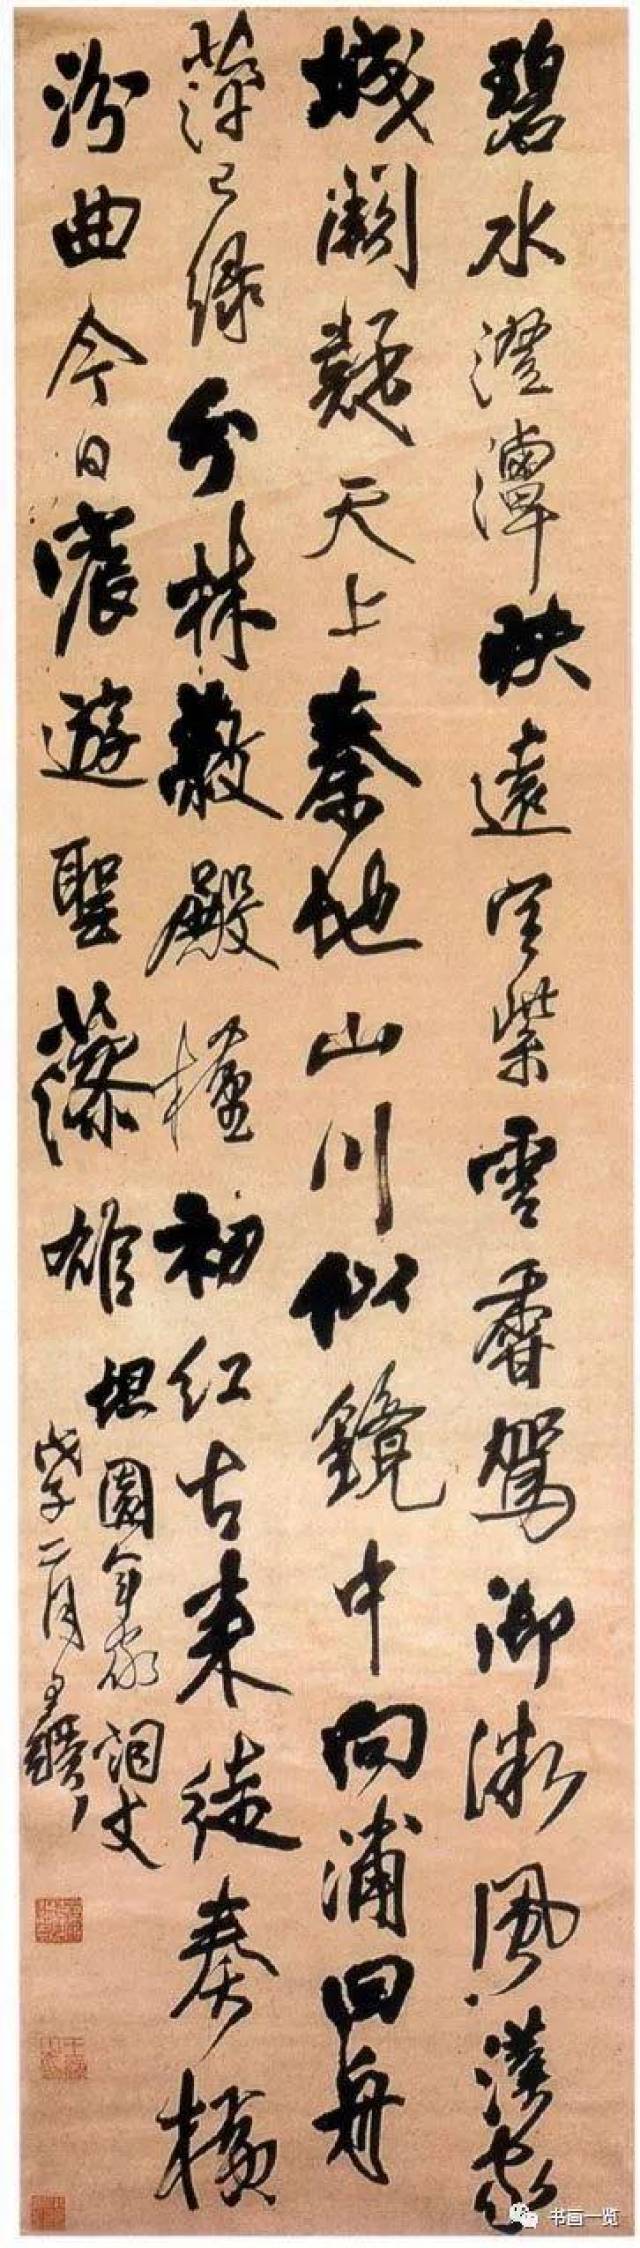 碧水澄潭映遠空紫雲香駕御微風漢家
城闕疑天上秦地山川似鏡中向浦回舟
萍已綠分林蔽殿槿初紅古來徒奏橫
汾曲今日宸遊聖藻雄
坦園年家詞丈
戊子二月王鐸
书画一览